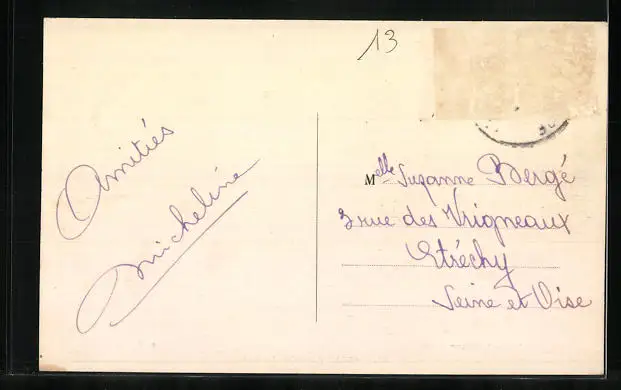 13
Amitiés
Micheline
Melle Suzanne Bergé
3 rue des Vrigneaux
Etréchy
Seine et Oise